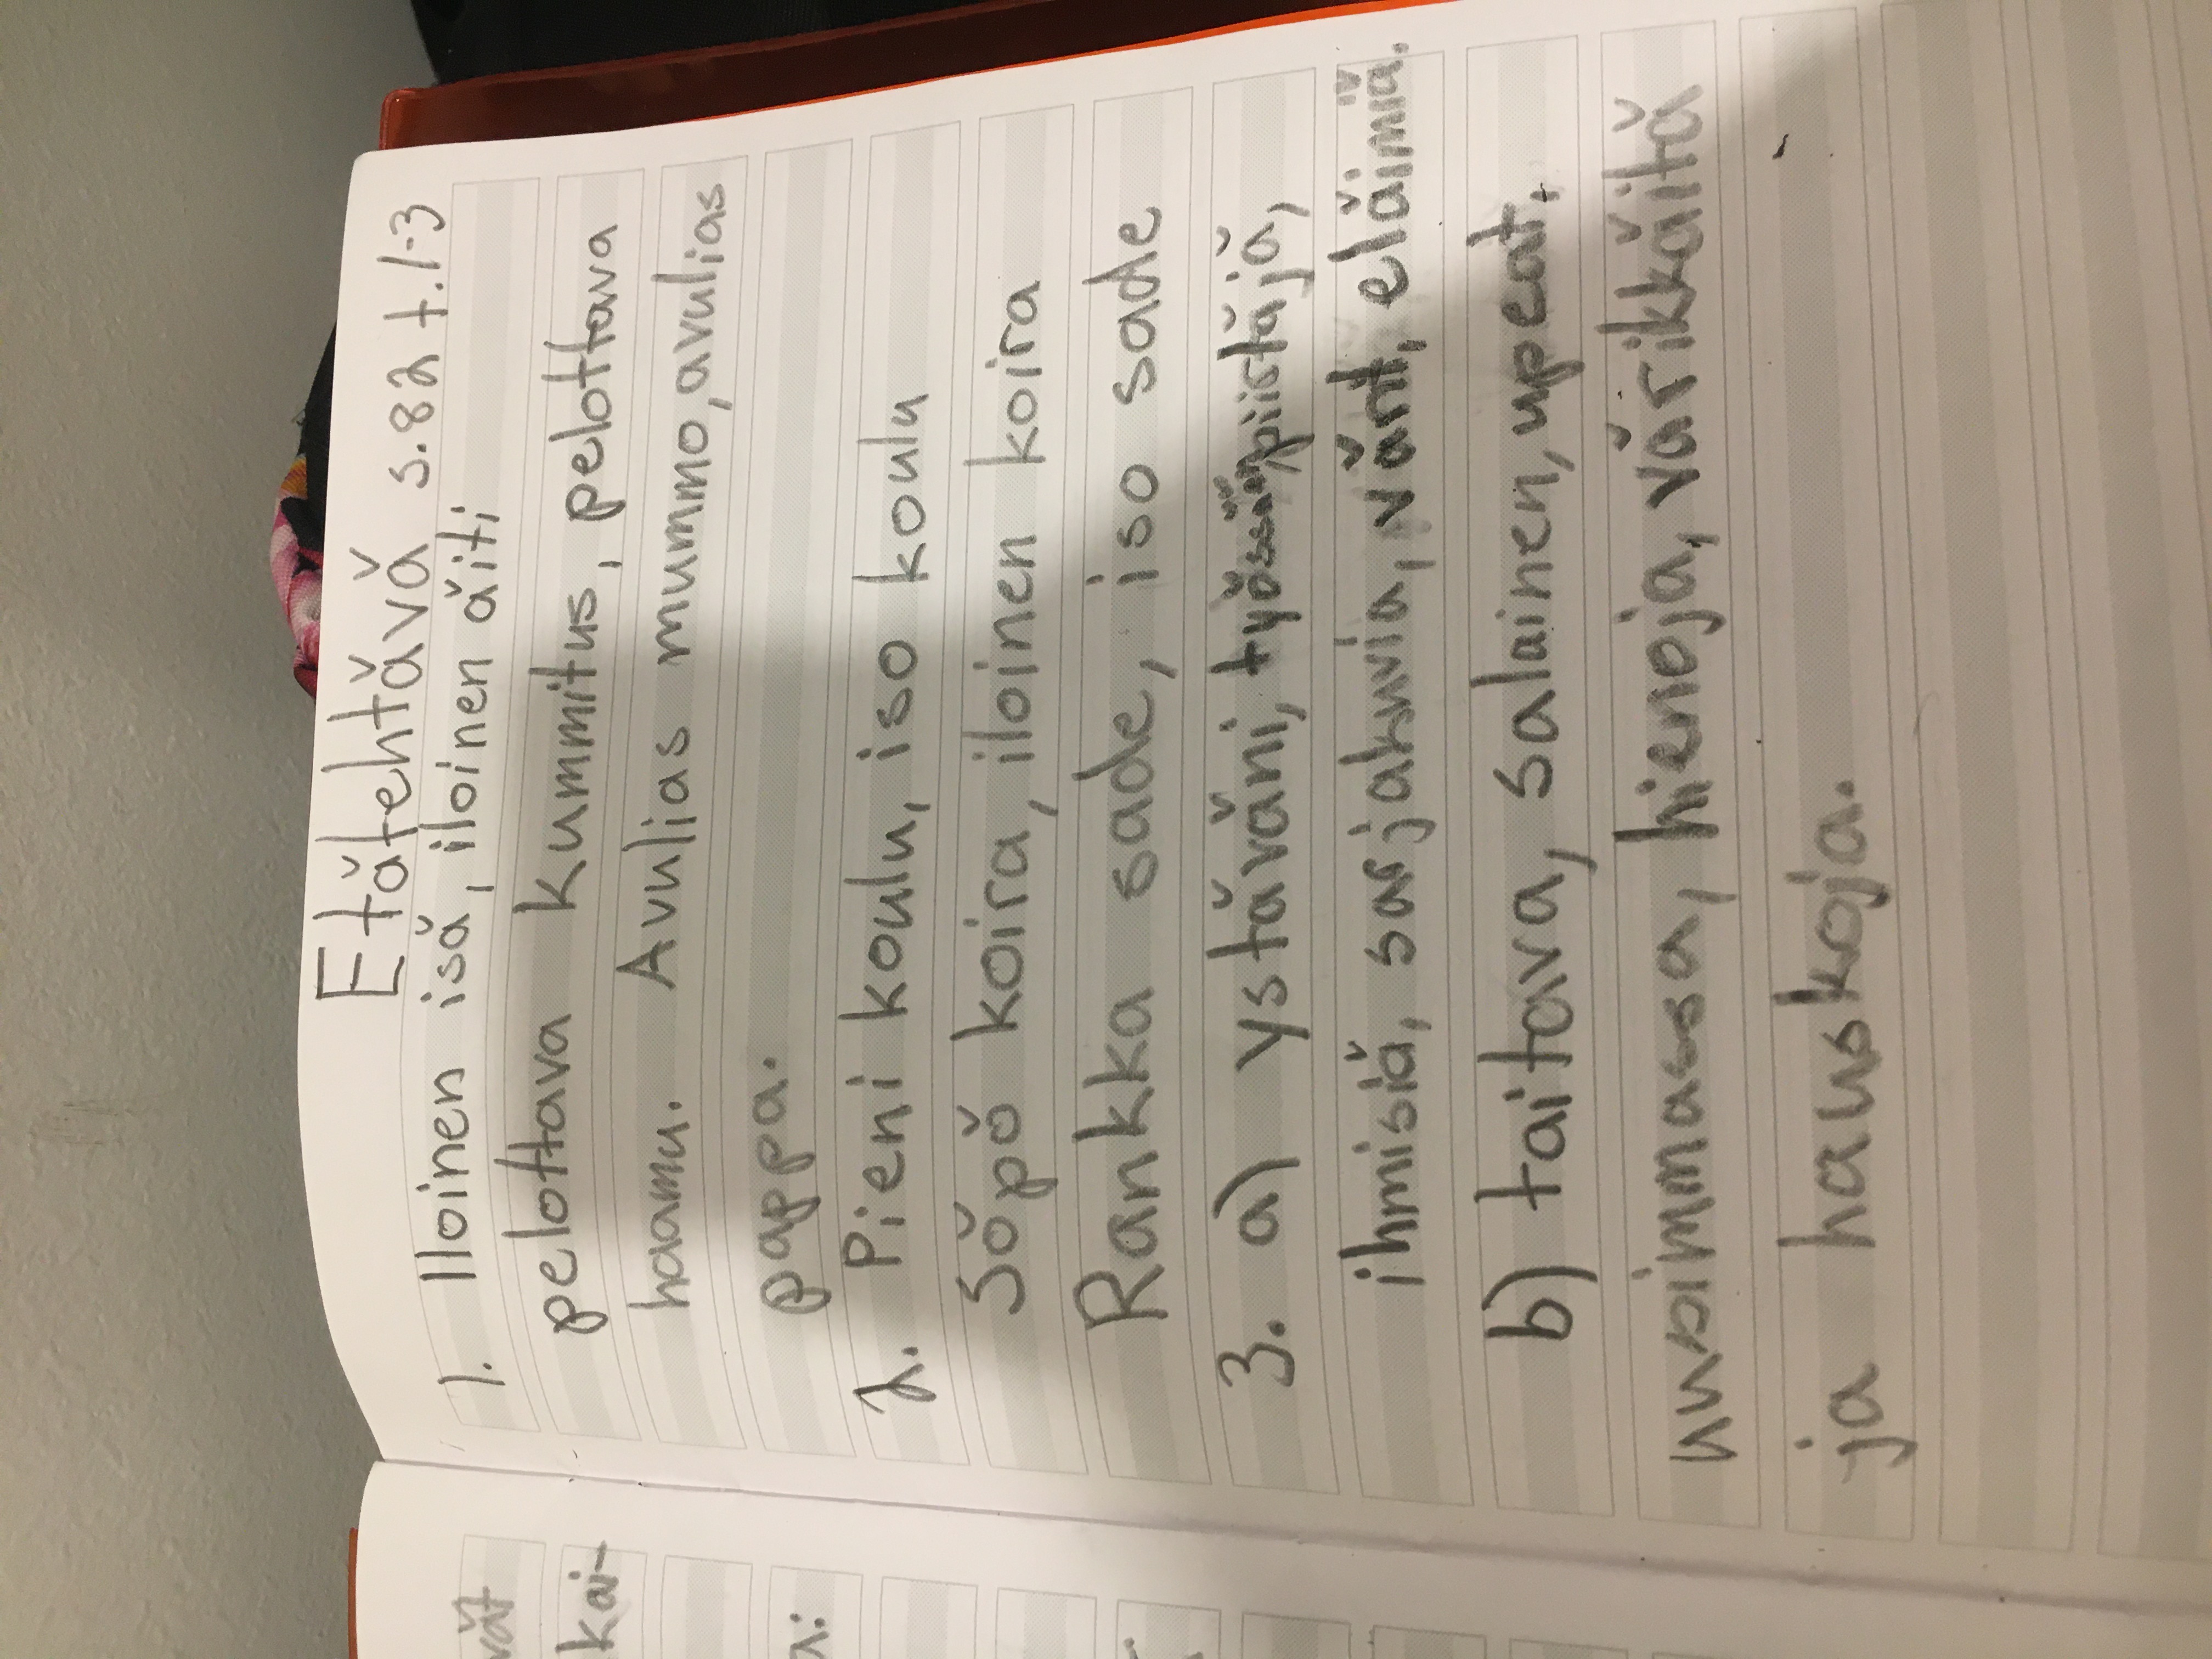 vät
kai-
Etätehtävä s.82 t.1-3
1. Iloinen isä, iloinen äiti
pelottava kummitus, pelottava
haamu. Avulias mummo, avulias
pappa.
2. Pieni koulu, iso koulu
Söpö koira, iloinen koira
Rankka sade, iso sade
3. a) ystäväni, piirtäjä,
ihmisiä, sarjakuvia, värit, eläimiä.
b) taitava, salainen, upeat,
uusimmassa, hienoja, värikkäitä
ja hauskoja.